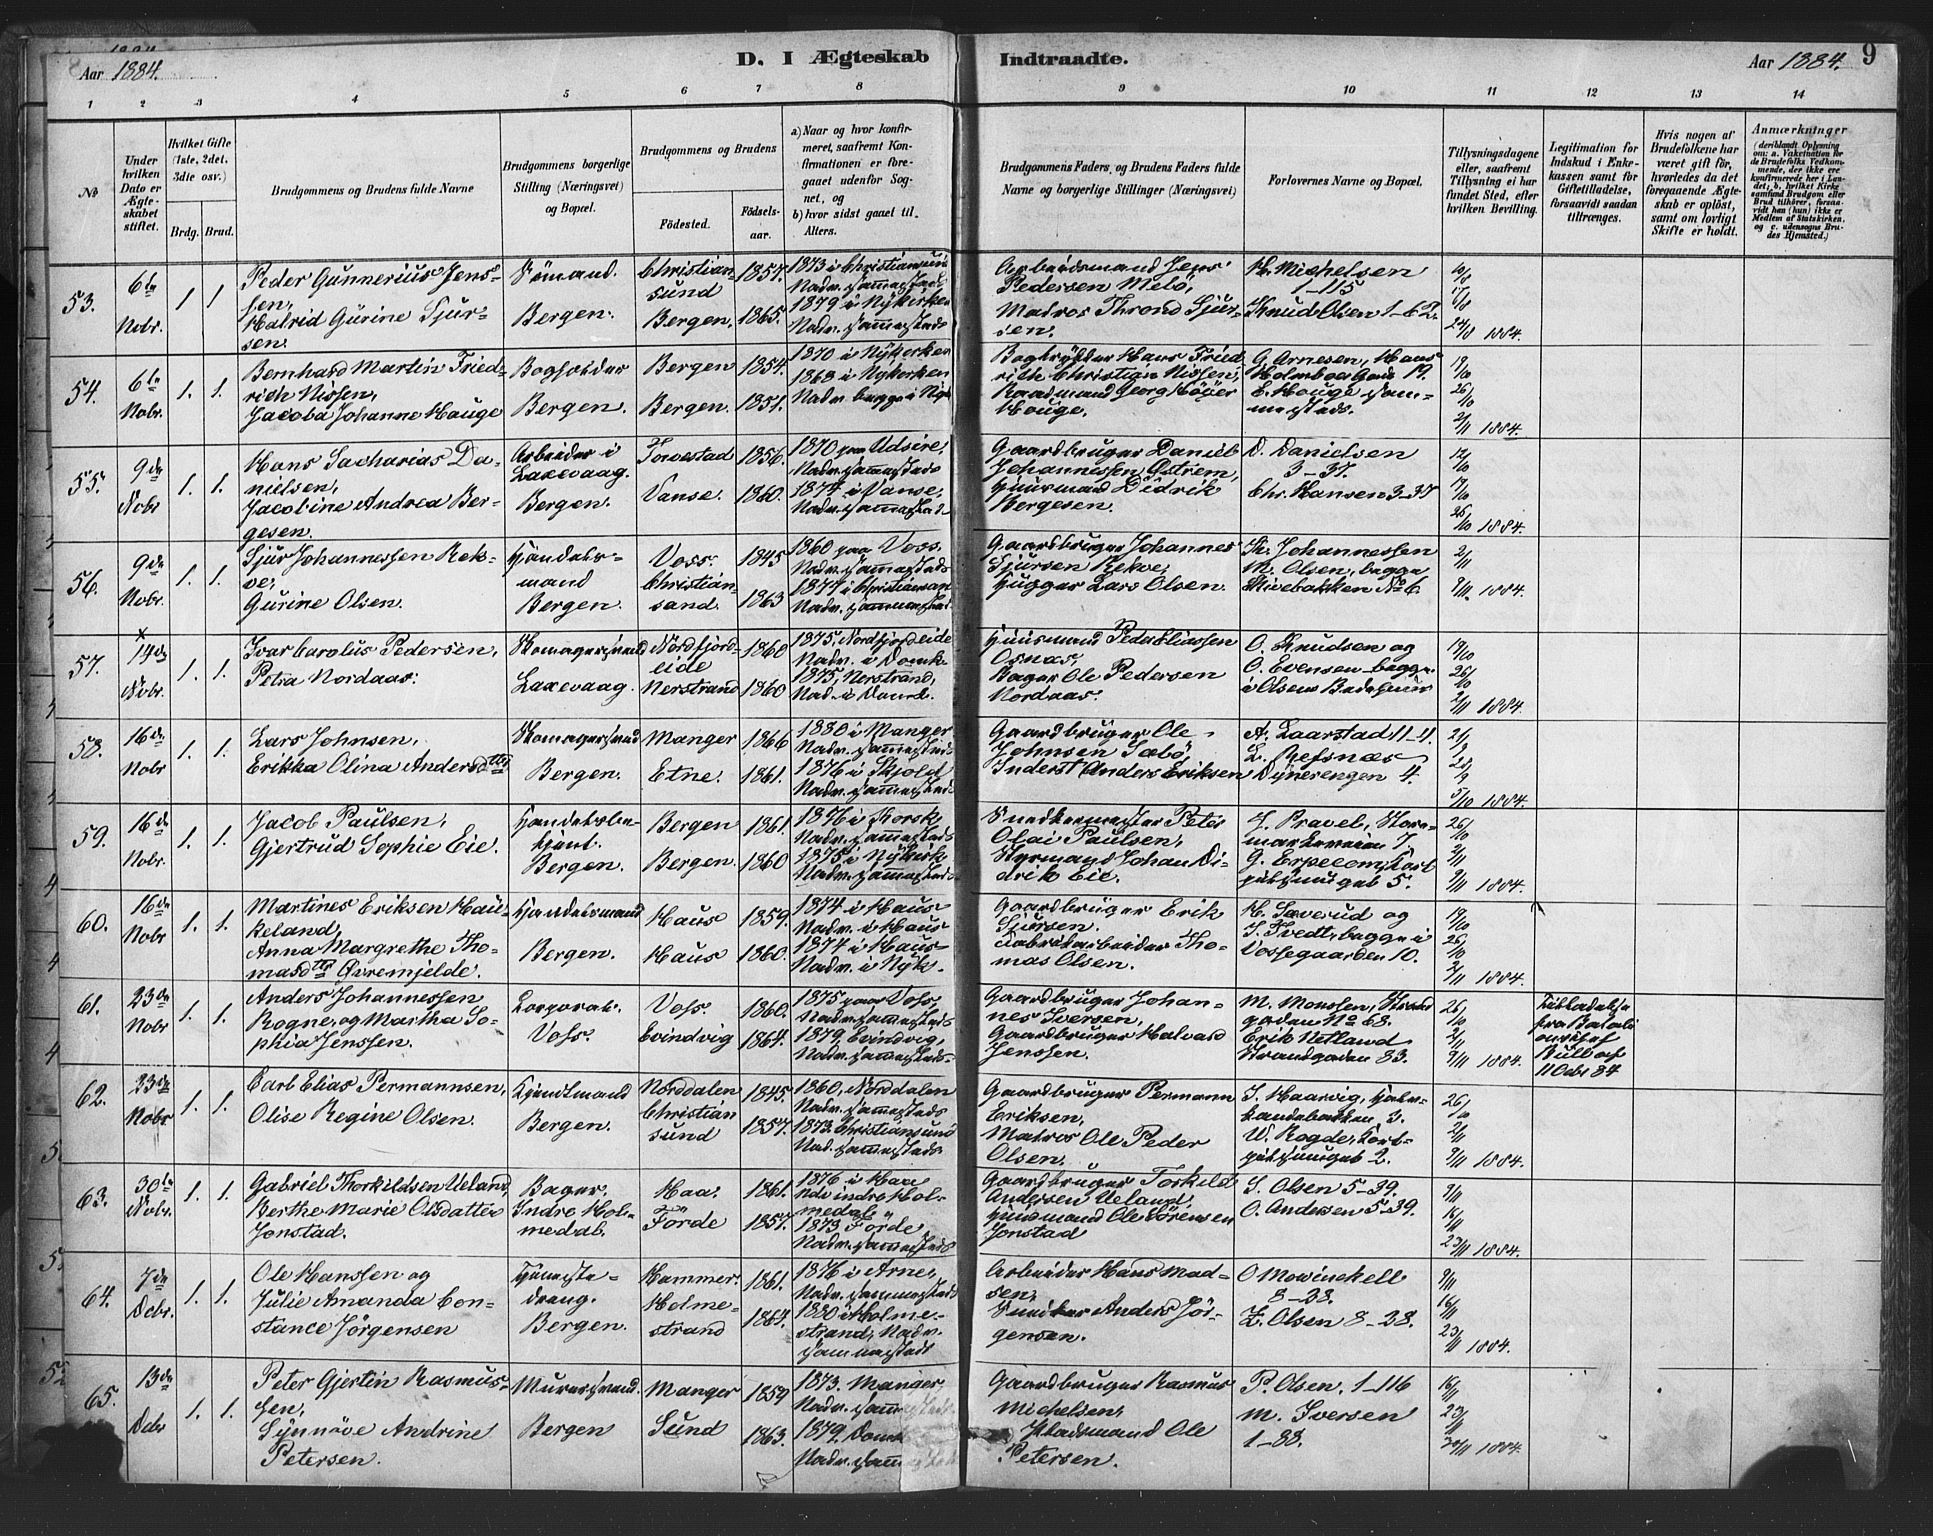 Aar 1884.
D. I Ægteskab Indtraadte.
Aar 1884.
9
1 2 3 4 5 6 7 8 9 10 11 12 13 14
No
Under hvilken Dato er Ægteskabet stiftet.
Hvilket Gifte (1ste, 2det, 3die osv.)
Brdg. Brud.
Brudgommens og Brudens fulde Navne
Brudgommens borgerlige Stilling (Næringsvei) og Bopæl.
Brudgommens og Brudens
Födested.
Födselsaar.
a) Naar og hvor konfirmeret, saafremt Konfirmationen er foregaaet udenfor Sognet, og
b) hvor sidst gaaet til Alters.
Brudgommens Faders og Brudens Faders fulde Navne og borgerlige Stillinger (Næringsvei)
Forlovernes Navne og Bopæl.
Tillysningsdagene eller, saafremt Tillysning ei har fundet Sted, efter hvilken Bevilling.
Legitimation for Indskud i Enkekassen samt for Giftetilladelse, forsaavidt saadan tiltrænges.
Hvis nogen af Brudefolkene har været gift för, hvorledes da det foregaaende Ægteskab er oplöst, samt om lovligt Skifte er holdt.
Anmærkninger (deriblandt Oplysning om: a. Vakcination for de Brudefolks Vedkommende, der ikke ere konfirmerede her i Landet; b. hvilket Kirkesamfund Brudgom eller Brud tilhörer, forsaavidt han (hun) ikke er Medlem af Statskirken, og c. udensogns Brudes Hjemsted.)
53. 6te Nobr. 1 1
Peder Gunnerius Jenssen,
Matrid Gurine Sjursen.
Sømand. Bergen.
Christiansund 1857.
Bergen. 1865.
1873 i Christiansund Nadv. sammestad.
1879 i Nykirken Nadv. sammesteds
Arbeidsmand Jens Pedersen Melö,
Matros Thrond Sjursen.
M. Michelsen 1-115
Knud Olsen 1-62.
10/8 17/8 24/8 1884.
54. 6te Nobr. 1. 1.
Bernhard Martin Friedrich Nissen,
Jacoba Johanne Hauge
Bogholder Bergen.
Bergen 1854.
Bergen. 1851.
1870 i Nykirken
1868 i Nykirken
Nadv. begge i Nyk
Bogtrykker Hans Friedrich Christian Nissen,
Raadmand Georg Höyer Houge.
G. Arnesen, Hans Holmboe Gade 19.
E. Houge sammesteds.
19/10 26/10 2/11 1884.
55. 9de Nobr 1. 1.
Hans Sacharias Danielsen,
Jacobine Andrea Bergesen.
Arbeider i Laxevaag. Bergen.
Torvestad 1856.
Vanse. 1860.
1870 paa Udsire, Nadv. sammesteds
1874 i Vanse, Nadv. sammested
Gaardbruger Daniel Johannessen Østrem,
Huusmand Didrik Bergesen.
D. Danielsen 3-37.
Chr. Hansen 3-37
12/10 19/10 26/10 1884.
56. 9de Nobr. 1. 1.
Sjur Johannessen Rekve,
Gurine Olsen.
Handelsmand Bergen.
Voss. 1845
Christiansand. 1863
1860 paa Voss, Nadv. sammesteds
1877 i Christiansand Nadv. sammested.
Gaardbruger Johannes Sjursen Rekve,
Hugger Lars Olsen.
Th. Johannessen
M. Olsen, begge Skivebakken No 6.
2/11 9/11. 1884.
57. x 14de Nobr. 1. 1.
Ivar Carolus Pedersen,
Petra Nordaas.
Skomagersvend Laxevaag.
Nordfjordeide 1860
Nerstrand 1860
1875, Nordfjordeide Nadv. i Domk.
1875, Nerstrand, Nad. i Domk.
Huusmand Peder Eliassen Osnæs,
Bager Ole Pedersen Nordaas.
O. Knudsen og
O. Evensen begge i Olsens Badehuus
19/10 26/10 2/11 1884.
58. 16de Nobr 1. 1.
Lars Johnsen,
Erikka Olina Andersdttr
Skomagersvend Bergen.
Manger 1866
Etne. 1861.
1880 i Manger Nadv. sammesteds
1876 i Skjold Nadv. sammesteds
Gaardbruger Ole Johnsen Sæbö,
Inderst Anders Eriksen
A. Laarstad 11-11.
L. Refsnæs Dynerengen 4.
21/9 28/9 5/10 1884.
59. 16de Nobr. 1. 1.
Jacob Paulsen,
Gjertrud Sophie Eie.
Handelsbetjent. Bergen.
Bergen 1861.
Bergen. 1860
1876 i Korsk. Nadv. sammesteds
1875 i Nykirk Nadv. sammesteds
Snedkermester Peter Olai Paulsen,
Styrmand Johan Didrik Eie.
26/10 2/11 9/11 1884.
60. 16de Nobr 1. 1.
Martines Eriksen Haukeland,
Anna Margrethe Thomasdttr Øvremjelde.
Handelsmand Bergen.
Haus 1859.
Haus 1860.
1874 i Haus Nadv. i Haus
1874 i Haus Nadv. i Nyk.
Gaardbruger Erik Sjursen.
Fabrikarbeider Thomas Olsen.
H. Sæverud og
J. Tvedt, begge i Vossegaarden 10.
19/10 26/10 2/11 1884.
61. 23de Nobr 1. 1.
Anders Johannessen Rogne, og Martha Sophia Jenssen.
Corporal. Voss.
Voss. 1860.
Evindvig 1864.
1875 paa Voss Nadv. sammesteds
1879, Evindvig, Nadv. sammesteds
Gaardbruger Johannes Iversen,
Gaardbruger Halvard Jenssen.
M. Monssen, Strandgaden No 68.
Erik Netland Strandgaden 83.
26/10 2/11 9/11 1884
Tilladelse fra Batalionschef Bull af 11 Octbr 84
62. 23de Nobr. 1. 1.
Carl Elias Permannsen,
Olise Regine Olsen.
Bergen.
Norddalen 1845.
Christiansund 1857.
1860, Norddalen Nadv. sammesteds
1873. Christiansund Nad. sammesteds
Gaardbruger Permann Eriksen,
Matros Ole Peder Olsen.
J. Haarvig,
W. Rogde, 2.
26/10 2/11 9/11 1884.
63. 30te Nobr. 1. 1.
Gabriel Thorkildsen Ueland,
Berthe Marie Olsdatter Jonstad.
Bager, Indre Holmedal.
Haa. 1861.
Förde 1857.
1876 i Haa Ndv indre Holmedal
1873 Förde Nadv. sammesteds
Gaardbruger Torkild Andersen Ueland,
Huusmand Ole Sörensen Jonstad
S. Olsen 5-39.
O. Andersen 5-39.
9/11 16/11 23/11 1884.
64. 7de Debr. 1. 1.
Ole Hanssen og
Julie Amanda Constance Jörgensen
Tjenestedreng. Bergen.
Hammer. 1861.
Holmestrand 1864.
1876 i Arne, Nadv. sammesteds
1880 i Holmestrand, Nadv. sammesteds
Arbeider Hans Madsen,
Snedker Anders Jörgensen.
O Mowinckell 8-38.
L. Olsen 8-28.
9/11 16/11 23/11 1884.
65. 13de Debr 1. 1.
Peter Gjertin Rasmussen,
Synnöve Andrine Petersen.
Murersvend. Bergen
Manger 1859
Sund 1863.
1873. Manger, Nadv. samme
1879. Domk Nadv. samm
Gaardbruger Rasmus Michelsen,
Pladsmand Ole Petersen.
P. Olsen. 1-116
M. Iversen 1-88.
16/11 23/11 30/11 1884.